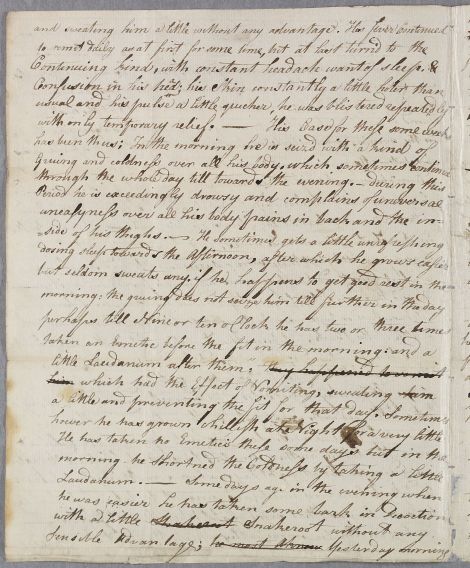 and sweating him a little without any advantage. His fever continued
to remit daily as at first for some time, but at last turned to the
Continuing kind, with constant headach want of sleep, &
Confusion in his head; his skin constantly a little hoter than
usual and his pulse a little quicker, he was blistered repeatedly
with only temporary relief. — His Case for these some weeks
has been thus; In the morning he is seized with a kind of
gruing and coldness over all his body, which sometimes continues
through the whole day till towards the evening. — during this
Period he is exceedingly drowsy and complains of universal
uneasyness over all his body pains in back and the in-
side of his thighs — He sometimes gets a little unrefreshing
dosing sleep towards the Afternoon, after which he grows easier
but seldom sweats any. if he happens to get good rest in the
morning, the gruing does not seize him till further in the day
perhaps till Nine or ten oClock he has two or three times
taken an emetic before the fit in the morning. and a
little Laudanum after them, they happened to vomit
him which had the Effect of Vomiting, sweating him
a little and preventing the fit for that day. Sometimes
however he has grown chillish at Night for a very little
He has taken no Emetics these some days but in the
morning he shortned the Coldness by taking a little
Laudanum. — Some days ago in the evening when
he was easier he has taken some bark in Decoction
with a little Snakeroot without any
sensible Advantage; Yesterday morning